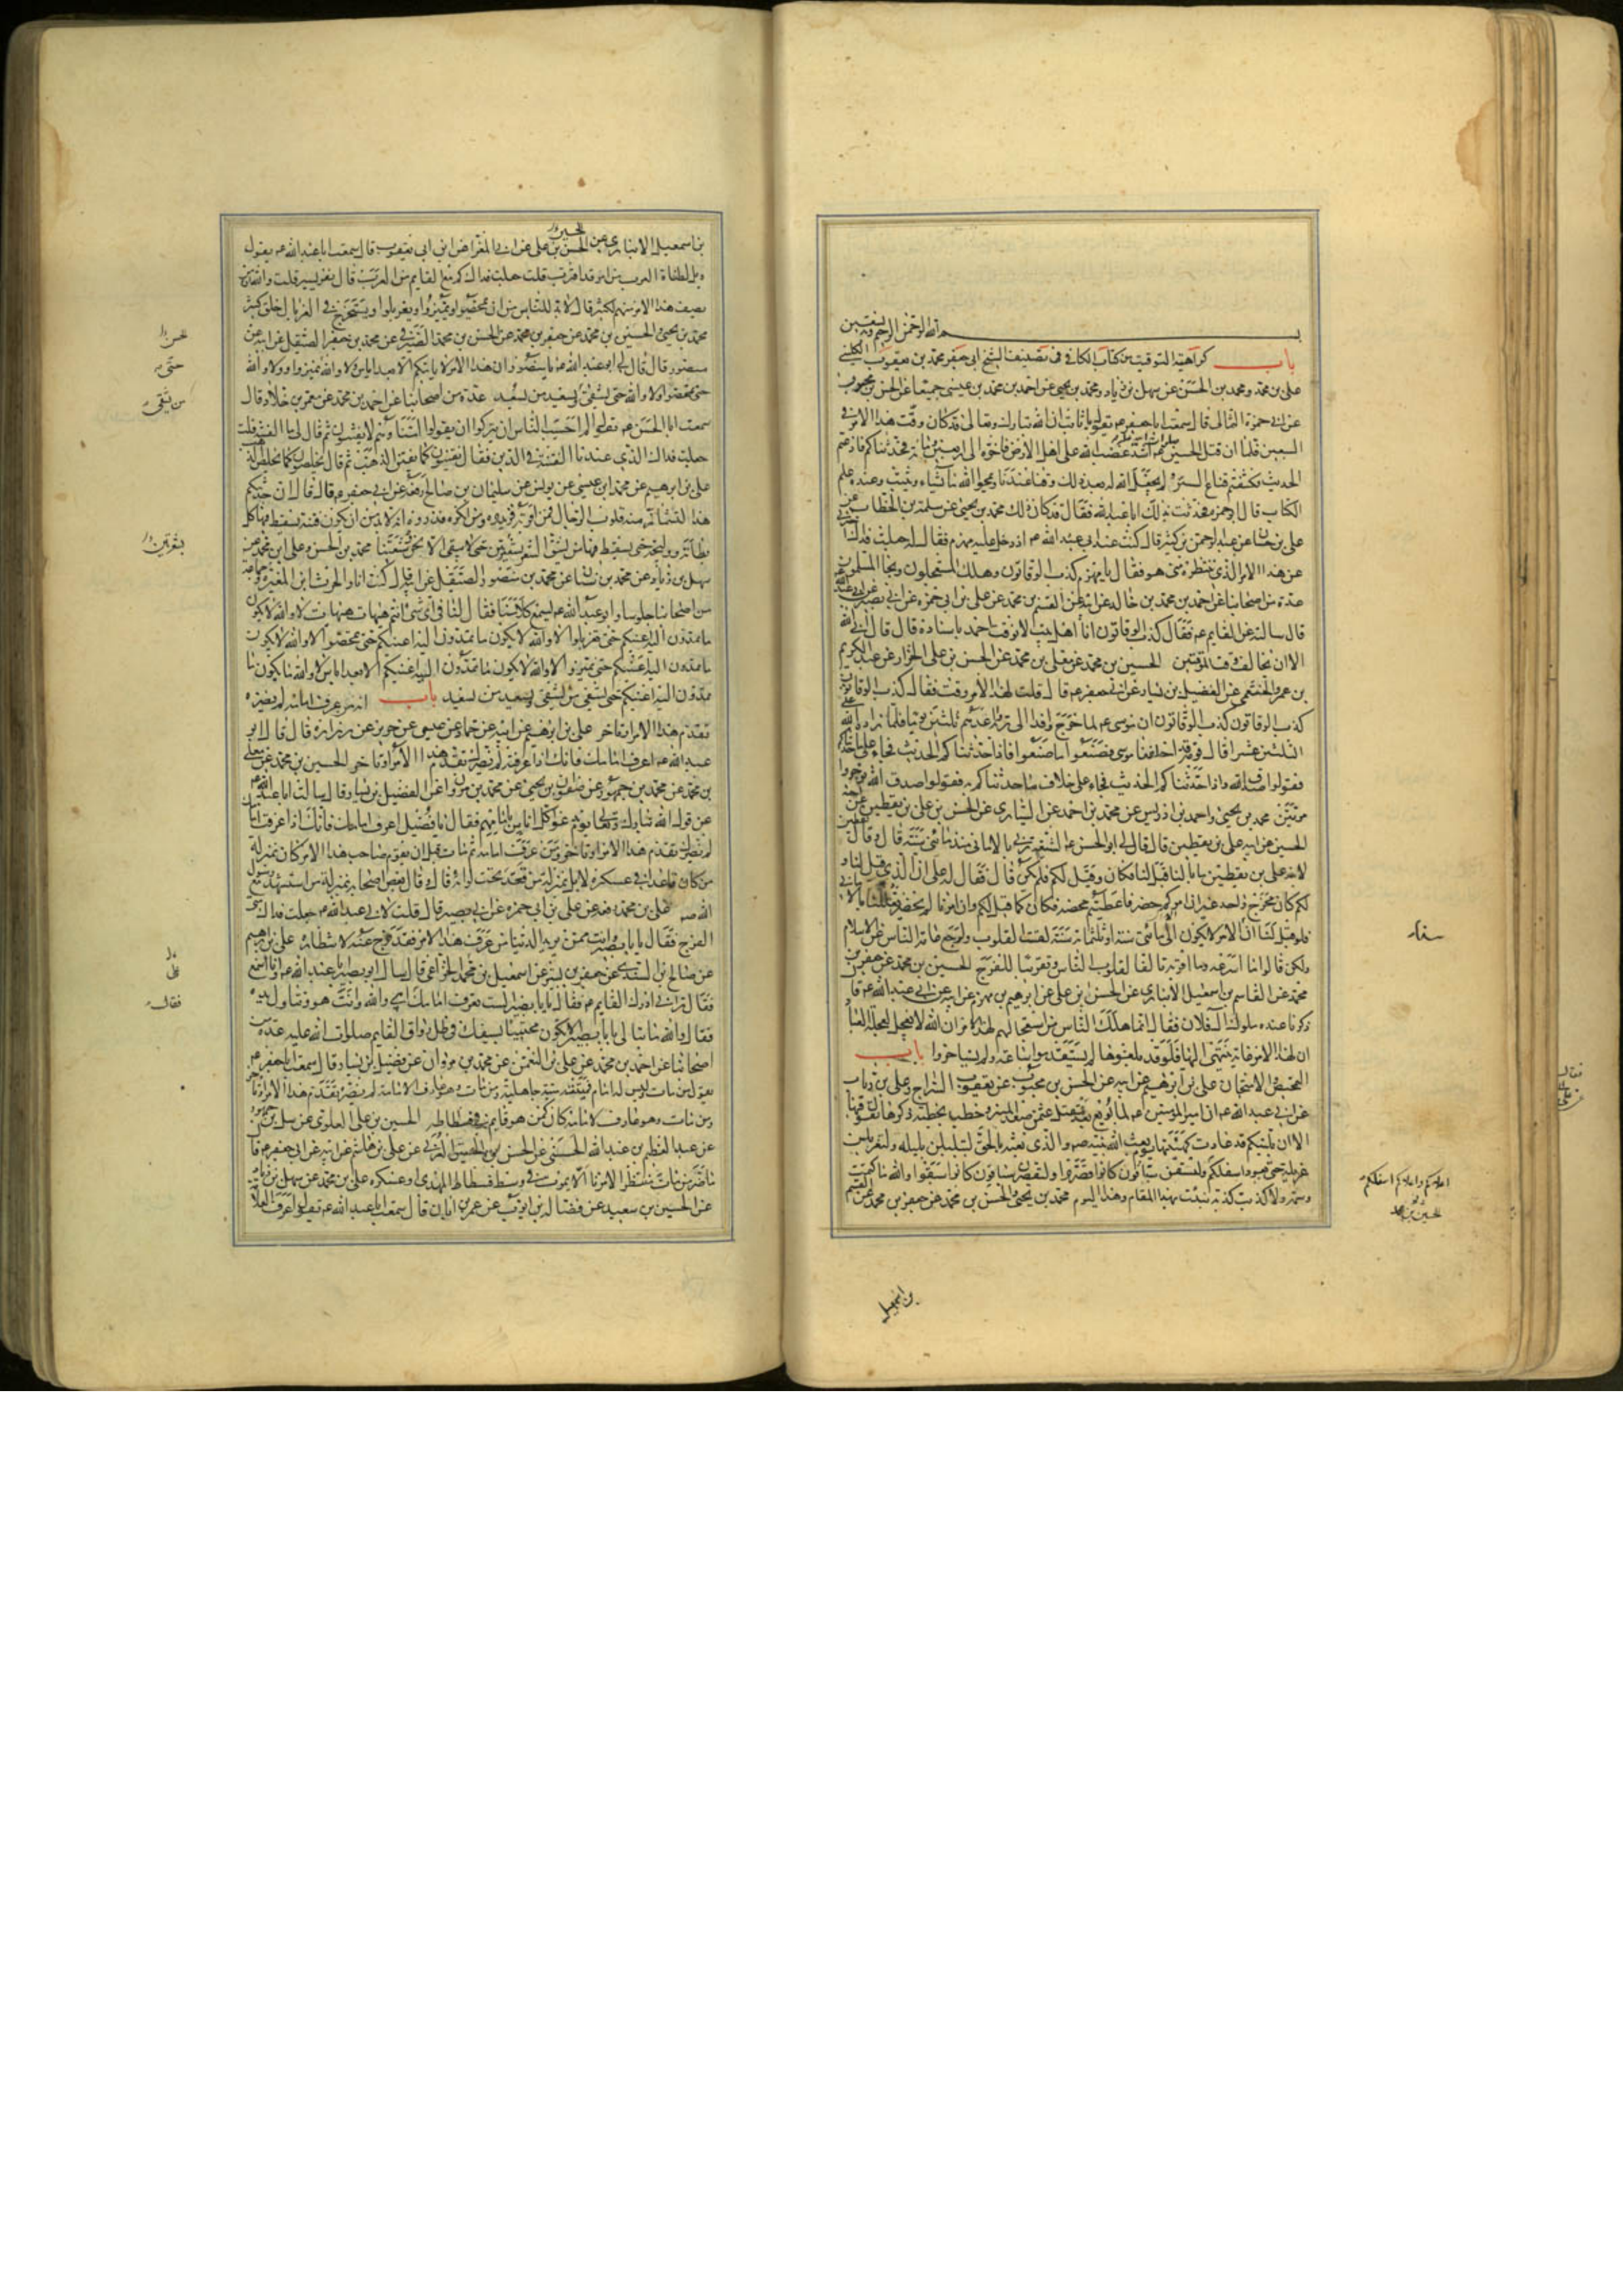 بسم الله الرحمن الرحيم وبه نستعين
باب كراهية التوقيت من كتاب الكافي في تصنيف الشيخ ابي جعفر محمد بن يعقوب الكليني
علي بن محمد ومحمد بن الحسن عن سهل بن زياد ومحمد بن يحيى عن احمد بن محمد بن عيسى جميعا عن الحسن بن محبوب
عن ابي حمزة الثمالي قال سمعت ابا جعفر عم يقول يا ثابت ان الله تبارك وتعالى قد كان وقت هذا الامر في
السبعين فلما ان قتل الحسين صلوات الله عليه اشتد غضب الله على اهل الارض فاخره الى اربعين ومائة فحدثناكم فاذعتم
الحديث فكشفتم قناع الستر ولم يجعل الله له بعد ذلك وقتا عندنا ويمحوا الله ما يشاء ويثبت وعنده علم
الكتاب قال ابو حمزة فحدثت بذلك ابا عبد الله فقال قد كان ذلك محمد بن يحيى عن سلمة بن الخطاب عن
علي بن حسان عن عبد الرحمن بن كثير قال كنت عند ابي عبد الله عم اذ دخل عليه مهزم فقال له جعلت فداك اخبرني
عن هذا الامر الذي ننتظره متى هو فقال يا مهزم كذب الوقاتون وهلك المستعجلون ونجا المسلمون
عدة من اصحابنا عن احمد بن محمد بن خالد عن ابيه عن القسم بن محمد عن علي بن ابي حمزة عن ابي بصير عن ابي عبد الله
قال سالته عن القايم عم فقال كذب الوقاتون انا اهل بيت لا نوقت احمد باسناده قال قال ابى الله
الا ان يخالف وقت الموقتين الحسين بن محمد عن معلى بن محمد عن الحسن بن علي الخزاز عن عبد الكريم
بن عمرو الخثعمي عن الفضيل بن يسار عن ابي جعفر عم قال قلت لهذا الامر وقت فقال كذب الوقاتون
كذب الوقاتون كذب الوقاتون ان موسى عم لما خرج وافدا الى ربه واعدهم ثلثين يوما فلما زاده الله على
الثلثين عشرا قال قومه قد اخلفنا موسى فصنعوا ما صنعوا فاذا حدثناكم الحديث فجاء على ما حدثناكم
فقولوا صدق الله واذا حدثناكم الحديث فجاء على خلاف ما حدثناكم به فقولوا صدق الله توجروا
مرتين محمد بن يحيى واحمد بن ادريس عن محمد بن احمد عن السياري عن الحسن بن علي بن يقطين عن اخيه
الحسين عن ابيه علي بن يقطين قال قال لي ابو الحسن عم الشيعة تربى بالاماني منذ مائتي سنة قال وقال يقطين
لابنه علي بن يقطين ما بالنا قيل لنا فكان وقيل لكم فلم يكن قال فقال له علي ان الذي قيل لنا و
لكم كان مخرج واحد غير ان امركم حضر فاعطيتم محضه فكان كما قيل لكم وان امرنا لم يحضر فعللنا بالاماني
فلو قيل لنا ان الامر لا يكون الى مائتي سنة او ثلثمائة سنة لقست القلوب ولرجع عامة الناس عن الاسلام
ولكن قالوا ما اسرعه وما اقربه تالفا لقلوب الناس وتقريبا للفرج الحسين بن محمد عن جعفر بن
محمد عن القاسم بن اسمعيل الانباري عن الحسن بن علي عن ابراهيم بن مهزم عن ابيه عن ابي عبد الله عم قال
ذكرنا عنده ملوك آل فلان فقال انما هلك الناس من استعجالهم لهذا الامر ان الله لا يعجل لعجلة العباد
ان لهذا الامر غاية ينتهي اليها فلو قد بلغوها لم يستقدموا ساعة ولم يستاخروا باب
التمحيص والامتحان علي بن ابرهيم عن ابيه عن الحسن بن محبوب عن يعقوب السراج وعلي بن رئاب
عن ابي عبد الله عم ان امير المؤمنين عم لما بويع بعد مقتل عثمن صعد المنبر وخطب بخطبة ذكرها يقول فيها
الا ان بليتكم قد عادت كهيئتها يوم بعث الله نبيه صم والذي بعثه بالحق لتبلبلن بلبلة ولتغربلن
غربلة حتى يعود اسفلكم وليسبقن سباقون كانوا قصروا وليقصرن سباقون كانوا سبقوا والله ما كتمت
وسمة ولا كذبت كذبة ولقد نبئت بهذا المقام وهذا اليوم محمد بن يحيى والحسن بن محمد عن جعفر بن محمد عن القسم
اعلاكم واعلاكم اسفلكم
بن اسمعيل
بن اسمعيل الانباري عن الحسن بن علي عن ابي المغرا عن ابن ابي يعفور قال سمعت ابا عبد الله عم يقول
ويل لطغاة العرب من امر قد اقترب قلت جعلت فداك كم مع القايم من العرب قال نفر يسير قلت والله ان من
يصف هذا الامر منهم لكثير قال لا بد للناس من ان يمحصوا ويميزوا ويغربلوا ويستخرج في الغربال خلق كثير
محمد بن يحيى والحسين بن محمد عن جعفر بن محمد عن الحسن بن محمد الصيرفي عن محمد بن جعفر الصيقل عن ابيه عن
منصور قال قال لي ابو عبد الله عم يا منصور ان هذا الامر لا ياتيكم الا بعد اياس ولا والله حتى تميزوا ولا والله
حتى تمحصوا ولا والله حتى يشقى ويسعد من يسعد عدة من اصحابنا عن احمد بن محمد عن معمر بن خلاد قال
سمعت ابا الحسن عم يقول الم احسب الناس ان يتركوا ان يقولوا امنا وهم لا يفتنون ثم قال لي ما الفتنة قلت
جعلت فداك الذي عندنا الفتنة في الدين فقال يفتنون كما يفتن الذهب ثم قال يخلصون كما يخلص الذهب
علي بن ابرهيم عن محمد بن عيسى عن يونس عن سليمان بن صالح رفعه عن ابي جعفر عم قال قال ان حديثكم
هذا لتشمئز منه قلوب الرجال فمن اقر به فزيدوه ومن انكره فذروه انه لا بد من ان يكون فتنة يسقط فيها كل
بطانة ووليجة حتى يسقط فيها من يشق الشعر بشعرتين حتى لا يبقى الا نحن وشيعتنا محمد بن الحسن وعلي بن محمد عن
سهل بن زياد عن محمد بن سنان عن محمد بن منصور الصيقل عن ابيه قال كنت انا والحرث ابن المغيرة وجماعة
من اصحابنا جلوسا وابو عبد الله عم يسمع كلامنا فقال لنا في اي شيء انتم هيهات هيهات لا والله لا يكون
ما تمدون اليه اعينكم حتى تغربلوا لا والله لا يكون ما تمدون اليه اعينكم حتى تمحصوا لا والله لا يكون
ما تمدون اليه اعينكم حتى تميزوا لا والله لا يكون ما تمدون اليه اعينكم الا بعد اياس لا والله ما يكون ما
تمدون اليه اعينكم حتى يشقى من يشقى ويسعد من يسعد باب انه من عرف امامه لم يضره
تقدم هذا الامر او تاخر علي بن ابرهيم عن ابيه عن حماد بن عيسى عن حريز عن زرارة قال قال ابو
عبد الله عم اعرف امامك فانك اذا عرفته لم يضرك تقدم هذا الامر او تاخر الحسين بن محمد عن معلى
بن محمد عن محمد بن جمهور عن صفوان بن يحيى عن محمد بن مروان عن الفضيل بن يسار قال سالت ابا عبد الله عم
عن قول الله تبارك وتعالى يوم ندعو كل اناس بامامهم فقال يا فضيل اعرف امامك فانك اذا عرفت امامك
لم يضرك تقدم هذا الامر او تاخر ومن عرف امامه ثم مات قبل ان يقوم صاحب هذا الامر كان بمنزلة
من كان قاعدا في عسكره لا بل بمنزلة من قعد تحت لوائه قال وقال بعض اصحابه بمنزلة من استشهد مع رسول
الله صم علي بن محمد رفعه عن علي بن ابي حمزة عن ابي بصير قال قلت لابي عبد الله عم جعلت فداك متى
الفرج فقال يا ابا بصير وانت ممن يريد الدنيا من عرف هذا الامر فقد فرج عنه لانتظاره علي بن ابرهيم
عن صالح بن السندي عن جعفر بن بشير عن اسمعيل بن محمد الخزاعي قال سال ابو بصير ابا عبد الله عم وانا اسمع
فقال تراني ادرك القايم عم فقال يا ابا بصير الست تعرف امامك اي والله وانت هو وتناول يده
فقال والله ما تبالي يا ابا بصير الا تكون محتبيا بسيفك في ظل رواق القايم صلوات الله عليه عدة من
اصحابنا عن احمد بن محمد عن علي بن النعمن عن محمد بن مروان عن فضيل بن يسار قال سمعت ابا جعفر عم
يقول من مات وليس له امام فميتته ميتة جاهلية ومن مات وهو عارف لامامه لم يضره تقدم هذا الامر او تاخر
ومن مات وهو عارف لامامه كان كمن هو قايم في فسطاطه الحسين بن علي العلوي عن سهل بن جمهور
عن عبد العظيم بن عبد الله الحسني عن الحسن بن الحسين العرني عن علي بن هاشم عن ابيه عن ابي جعفر عم قال
ما ضر من مات منتظرا لامرنا الا يموت في وسط فسطاط المهدي وعسكره علي بن محمد عن سهل بن زياد
عن الحسين بن سعيد عن فضالة بن ايوب عن عمر بن ابان قال سمعت ابا عبد الله عم يقول اعرف العلامة
حتى
من يشقى
بشعرتين
فقال